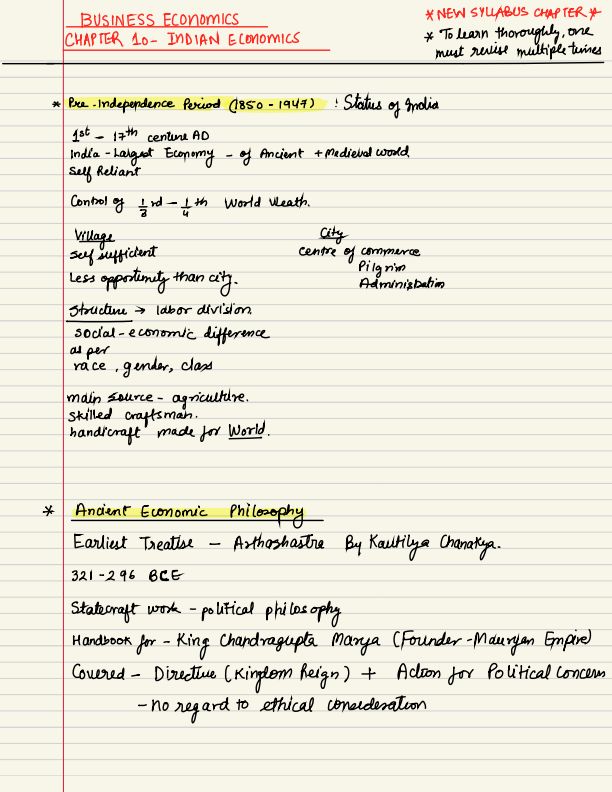 BUSINESS ECONOMICS
CHAPTER 10- INDIAN ECONOMICS
* NEW SYLLABUS CHAPTER *
* To learn thoroughly, one
must revise multiple times
* Pre-Independence Period (1850-1947) : Status of India
1st - 17th centure AD
India - Largest Economy - of Ancient + Medieval world
Self Reliant
Control of 1/3 rd - 1/4 th World Wealth.
Village
Self sufficient
Less opportunity than city.
City
Centre of commerce
Pilgrim
Administration
Structure → labor division
social - economic difference
as per
race, gender, class
main source - agriculture.
skilled craftsman.
handicraft made for World.
* Ancient Economic Philosophy
Earliest Treatise - Arthashastre By Kautilya Chanakya.
321-296 BCE
Statecraft work - political philosophy
Handbook for - King Chandragupta Marya (Founder - Mauryan Empire)
Covered - Directive (Kingdom Reign) + Action for Political Concerns
- no regard to ethical consideration